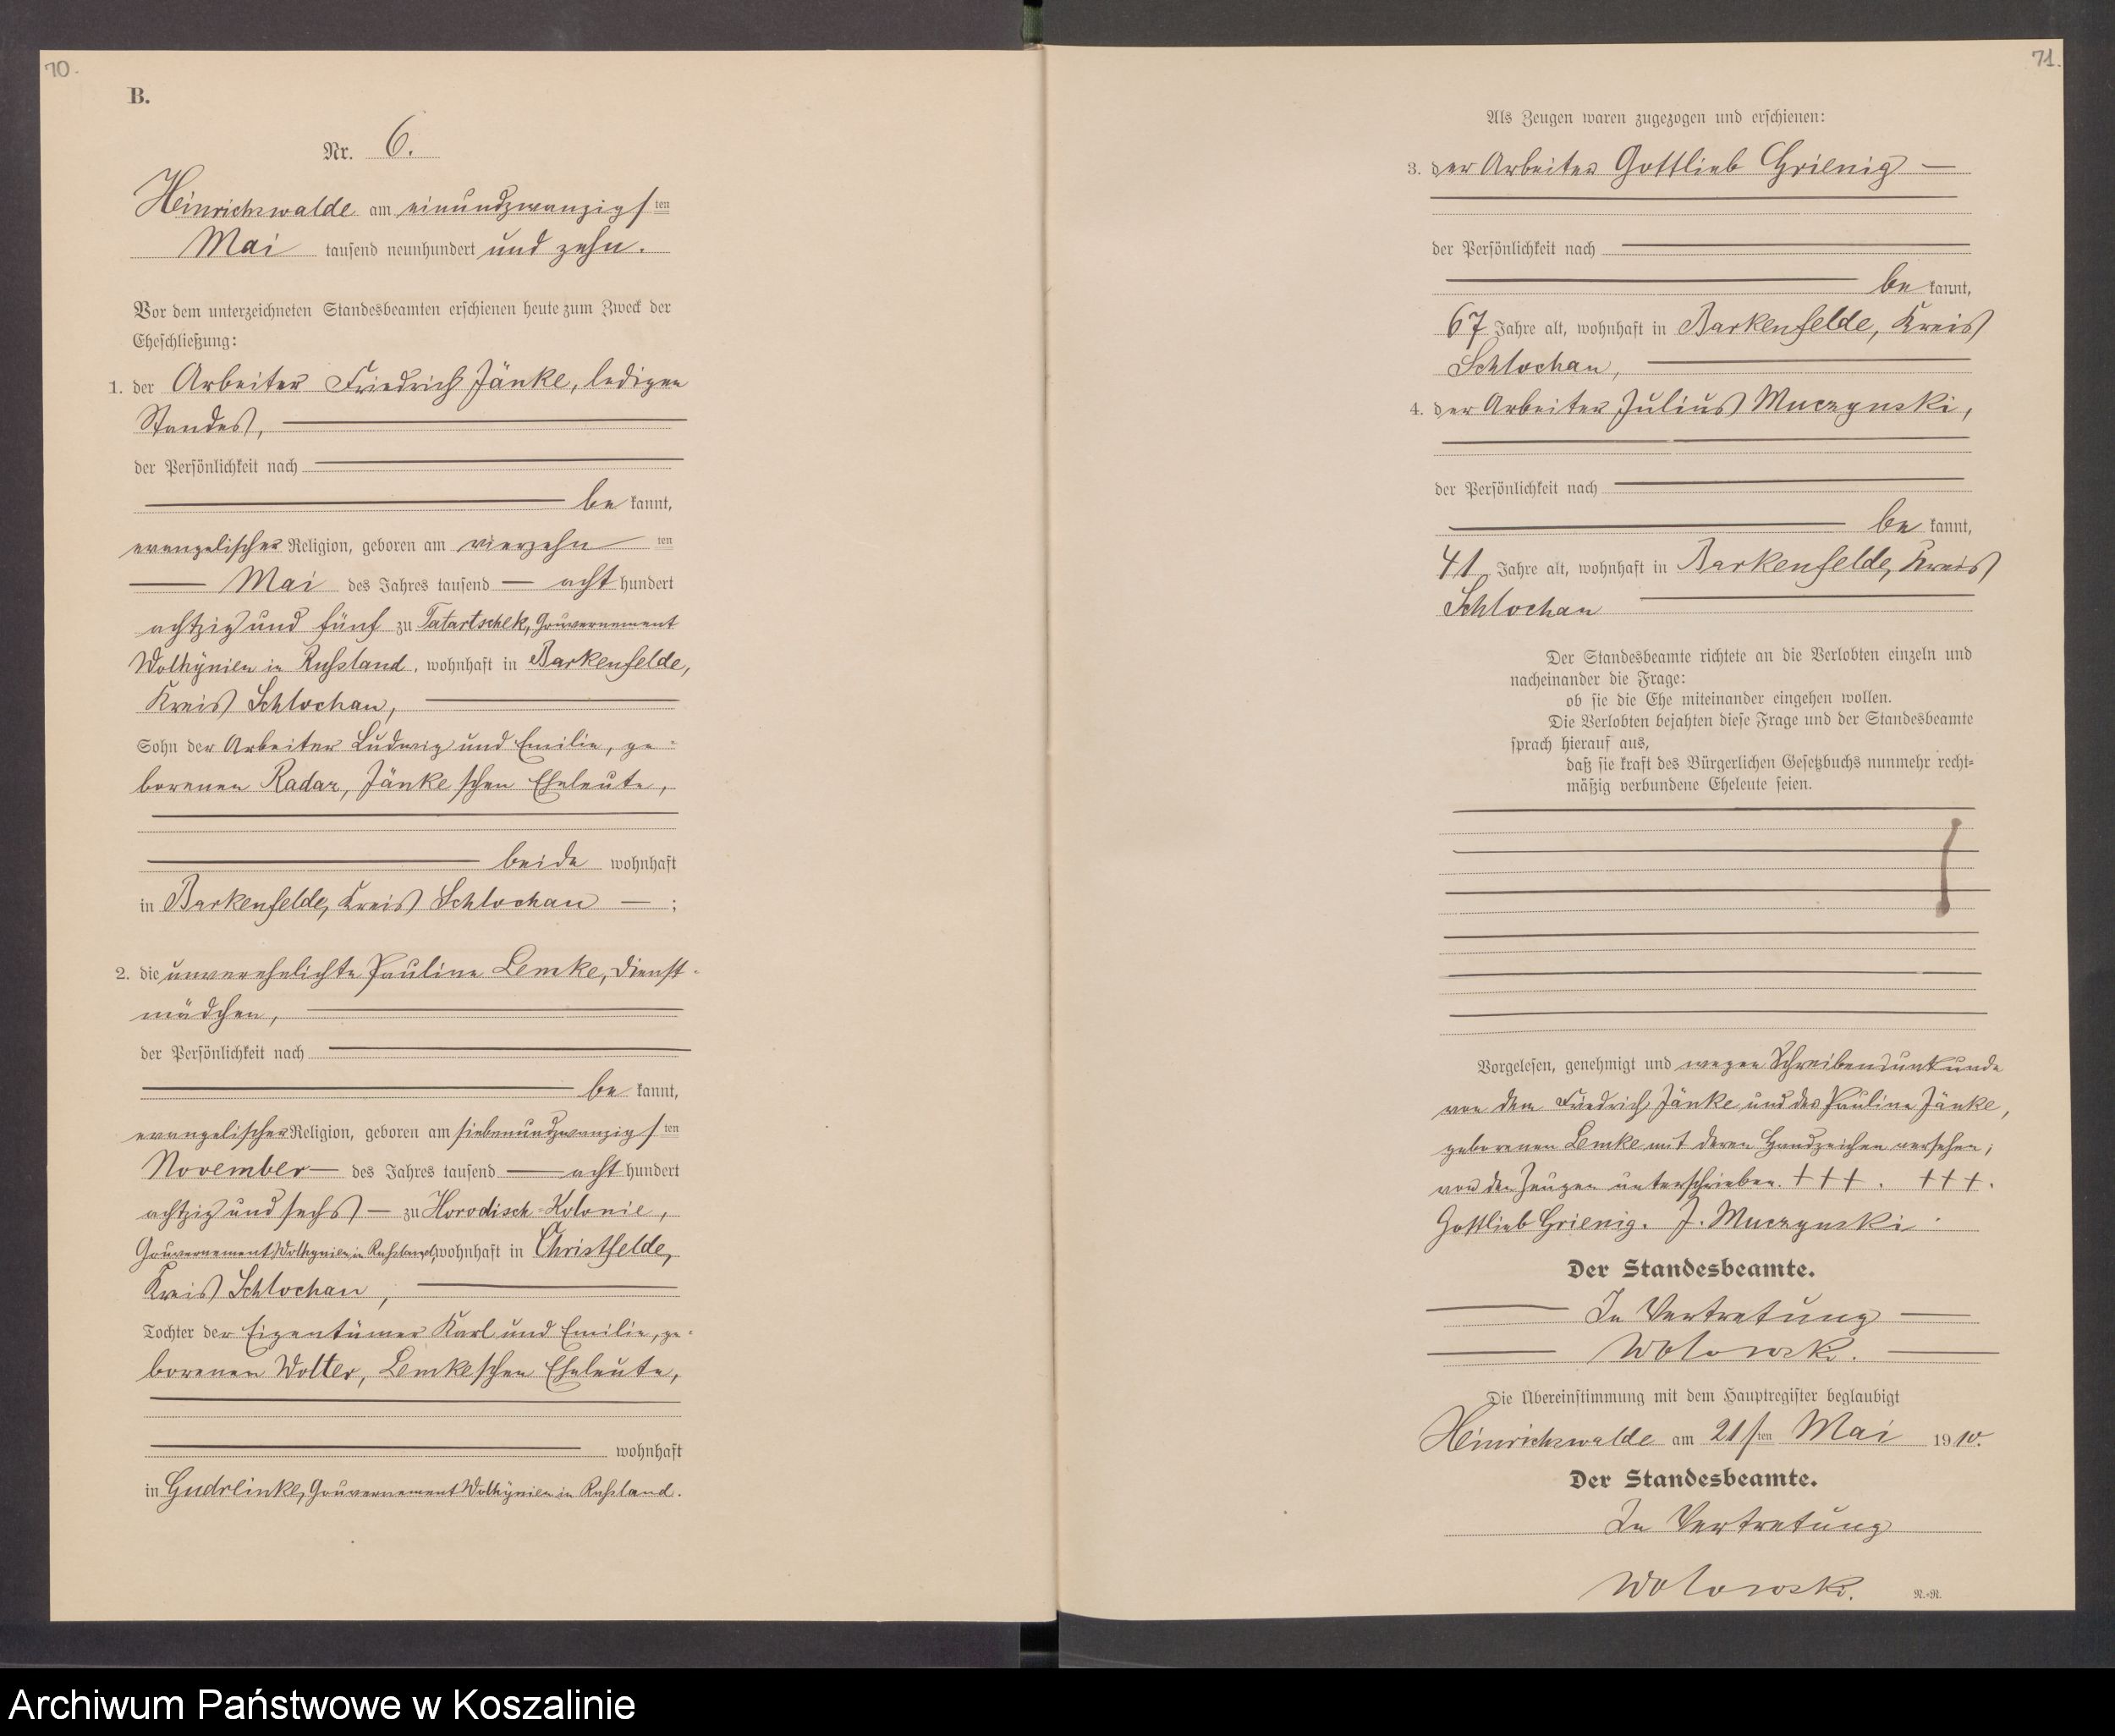 70.
B.
Nr. 6.
Heinrichswalde am einundzwanzigsten
Mai tausend neunhundert und zehn.
Vor dem unterzeichneten Standesbeamten erschienen heute zum Zweck der
Eheschließung:
1. der Arbeiter Friedrich Jänke, ledigen
Standes,
der Persönlichkeit nach
be kannt,
evangelischer Religion, geboren am vierzehn ten
Mai des Jahres tausend acht hundert
achtzig und fünf zu Tatartschek, Gouvernement
Wolhynien in Russland, wohnhaft in Barkenfelde,
Kreis Schlochau,
Sohn der Arbeiter Ludwig und Emilie, ge-
borenen Radaz, Jänke'schen Eheleute,
beide wohnhaft
in Barkenfelde, Kreis Schlochau — ;
2. die unverehelichte Pauline Lemke, Dienst-
mädchen,
der Persönlichkeit nach
be kannt,
evangelischer Religion, geboren am siebenundzwanzigsten
November des Jahres tausend acht hundert
achtzig und sechs — zu Horodisch-Kolonie,
Gouvernement Wolhynien in Russland, wohnhaft in Christfelde,
Kreis Schlochau,
Tochter der Eigentümer Karl und Emilie, ge-
borenen Wolter, Lemkeschen Eheleute,
wohnhaft
in Gudrlinke, Gouvernement Wolhynien in Russland.
71.
Als Zeugen waren zugezogen und erschienen:
3. der Arbeiter Gottlieb Grienig —
der Persönlichkeit nach
be kannt,
67 Jahre alt, wohnhaft in Barkenfelde, Kreis
Schlochau,
4. der Arbeiter Julius Muczynski,
der Persönlichkeit nach
be kannt,
41 Jahre alt, wohnhaft in Barkenfelde, Kreis
Schlochau
Der Standesbeamte richtete an die Verlobten einzeln und
nacheinander die Frage:
ob sie die Ehe miteinander eingehen wollen.
Die Verlobten bejahten diese Frage und der Standesbeamte
sprach hierauf aus,
daß sie kraft des Bürgerlichen Gesetzbuchs nunmehr recht-
mäßig verbundene Eheleute seien.
Vorgelesen, genehmigt und wegen Schreibensunkunde
von dem Friedrich Jänke und der Pauline Jänke,
geborenen Lemke mit deren Handzeichen versehen;
von den Zeugen unterschrieben. +++. +++.
Gottlieb Grienig. J. Muczynski.
Der Standesbeamte.
In Vertretung
Wolowski.
Die Übereinstimmung mit dem Hauptregister beglaubigt
Heinrichswalde am 21sten Mai 1910.
Der Standesbeamte.
In Vertretung
Wolowski.
R.-R.
Archiwum Państwowe w Koszalinie